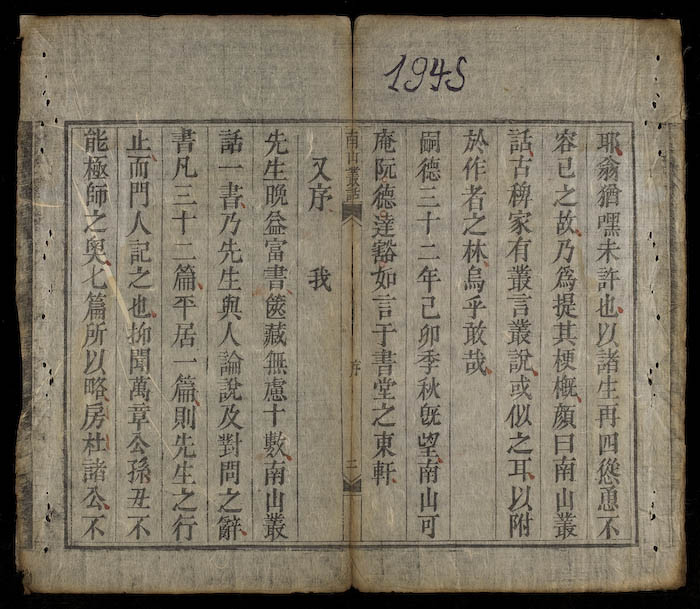 1945
耶翁猶嘿未許也以諸生再四慫恿不
容已之故乃爲提其梗概顏曰南山叢
話古稗家有叢言叢說或似之耳以附
於作者之林烏乎敢哉
嗣德三十二年己卯季秋旣望南山可
庵阮德達豁如言于書堂之東軒
南山叢話
序
三
又序 我
先生晚益富書篋藏無慮十數南山叢
話一書乃先生與人論說及對問之辭
書凡三十二篇平居一篇則先生之行
止而門人記之也抑聞萬章公孫丑不
能極師之奧七篇所以略房杜諸公不